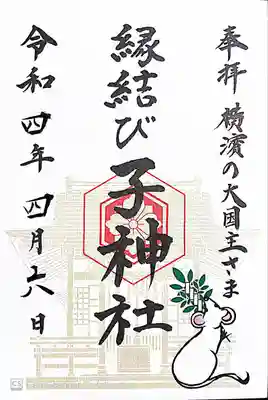 奉拝 横濱の大国主さま
縁結び 子神社
令和四年 四月十六日